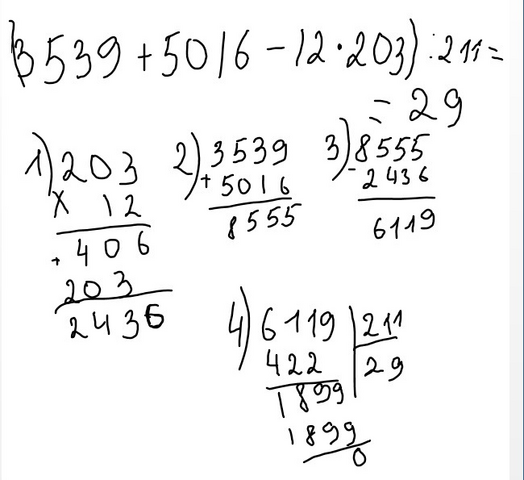 (3539+5016-12·203):211=
=29
1) 203
× 12
+406
203
2436
2) 3539
+5016
8555
3) 8555
-2436
6119
4) 6119 | 211
422 | 29
1899
1899
0